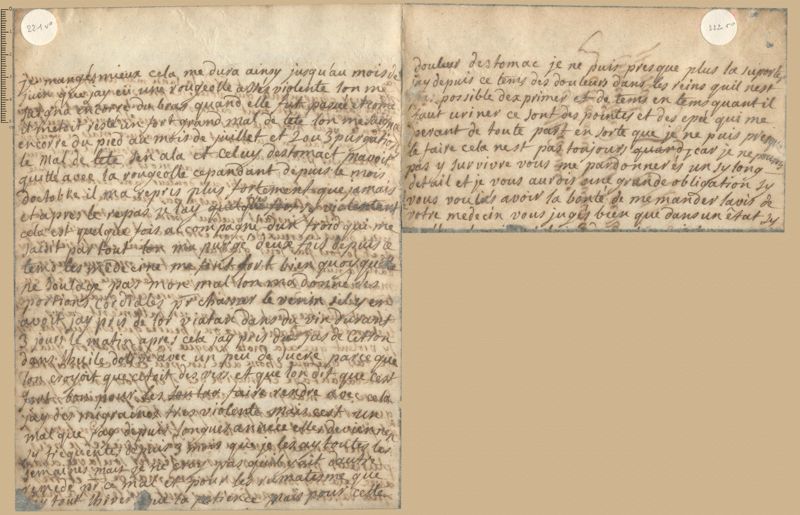 221 v°
je mangés mieux cela me dura ainsy jusqu'au mois de
juin que jay eü une rougeolle assés violente lon me
saigna encorre du bras quand elle fut passée et come
il metoit resté un fort grand mal de tete lon me saigna
encorre du pied au mois de juillet et 2 ou 3 purgations
le mal de tete sen ala et celuy destomact mavoit
quitté avec la rougeolle cepandant depuis le mois
doctobre il ma repris plus fortement que jamais
et apres le repas
cela est quelque fois acompagné dun froid qui me
saisit par tout lon ma purgé deux fois depuis ce
tems les medecine me font fort bien quoy quelle
ne soulage pas mon mal lon ma donné des
portions cordiales pr chasser le venin sil y en
avoit jay pris de lor viatan dans du vin durant
3 jours le matin apres cela jay pris du jus de citron
dans lhuile dolive avec un peu de sucre parce que
lon croyoit que cetoit des vers et que lon dit que cest
fort bon pour les faire rendre avec cela
jay des migraines tres violente mais cest un
mal que jay depuis longues année elles deviennes
sy frequentes depuis 3 mois que je les ay toutes les
semaines mais je ne croy pas quil y ait dautre
remede pr ce mal et pour les rumatisme que
tout lhiver que la patience mais pour cette
222 v°
douleur destomac je ne puis presque plus la suporter
jay depuis ce tems des douleurs dans les reins quil nest
pas possible dexprimer et de tems en tems quant il
faut uriner ce sont des pointes et des epée qui me
persant de toute part en sorte que je ne puis presque
le faire cela nest pas toujours quard, car je ne pourois
pas y survivre vous me pardonnerés un sy long
detail et je vous aurois une grande obligation sy
vous vouliés avoir la bonté de me mander lavis de
votre medecin vous jugés bien que dans un état sy